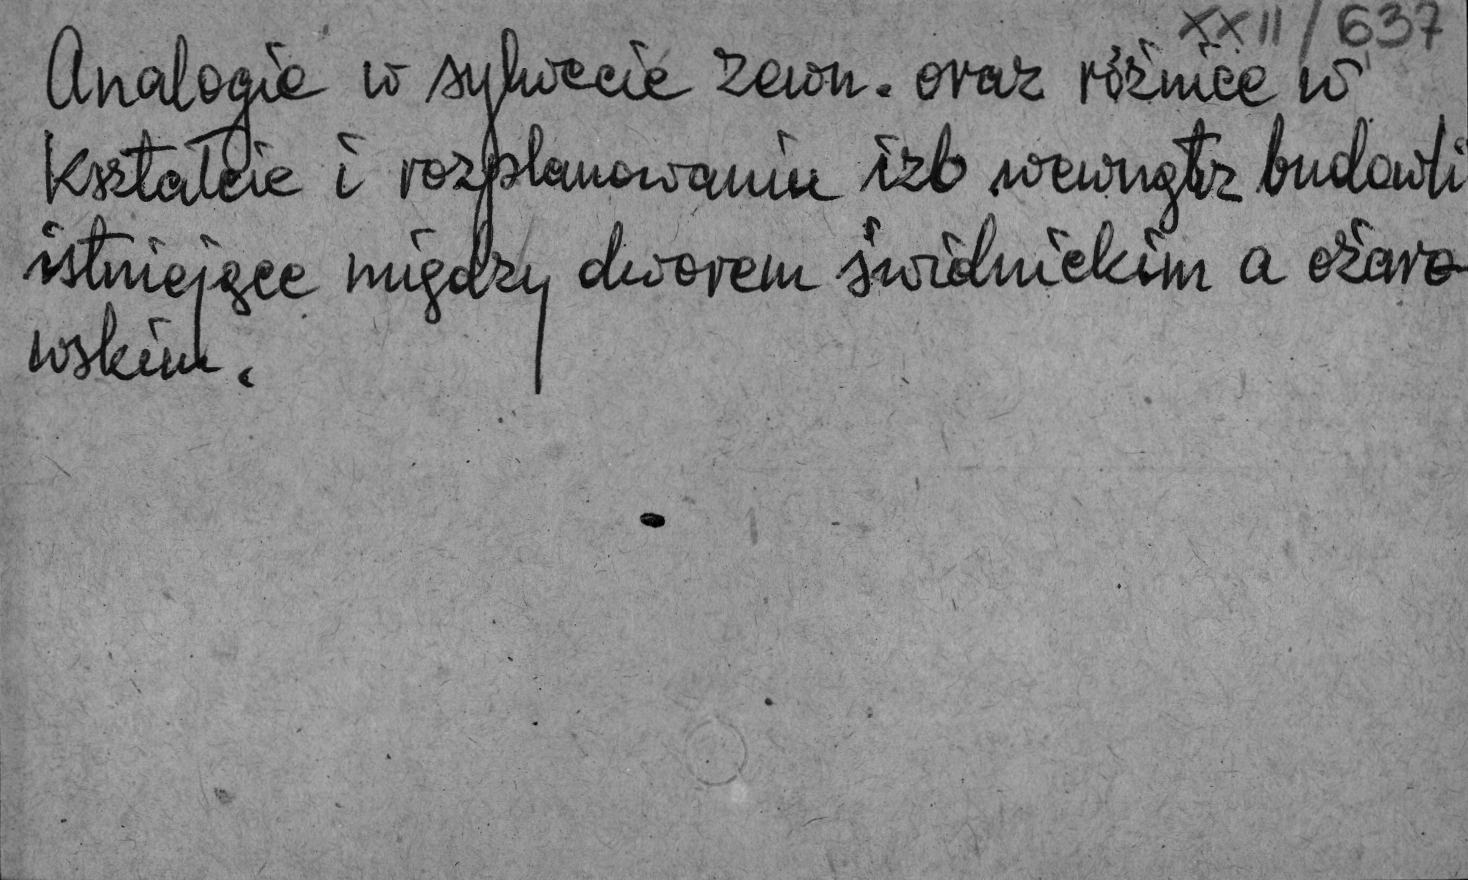 XXII/637
Analogie w sylwecie zewn. oraz różnice w
kształcie i rozplanowaniu izb wewnątrz budowli
istniejące między dworem świdnickim a ożaro-
wskim.